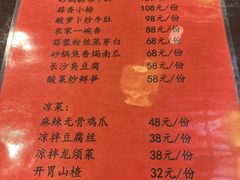 蒜香小排 108元/份
酸萝卜炒牛肚 98元/份
农家一碗香 88元/份
蒜蓉粉丝蒸茅白 68元/份
砂锅焦香焗南瓜 68元/份
长沙臭豆腐 58元/份
酸菜炒鲜笋 58元/份
凉菜：
麻辣无骨鸡爪 48元/份
凉拌豆腐丝 38元/份
凉拌龙须菜 38元/份
开胃山楂 32元/份